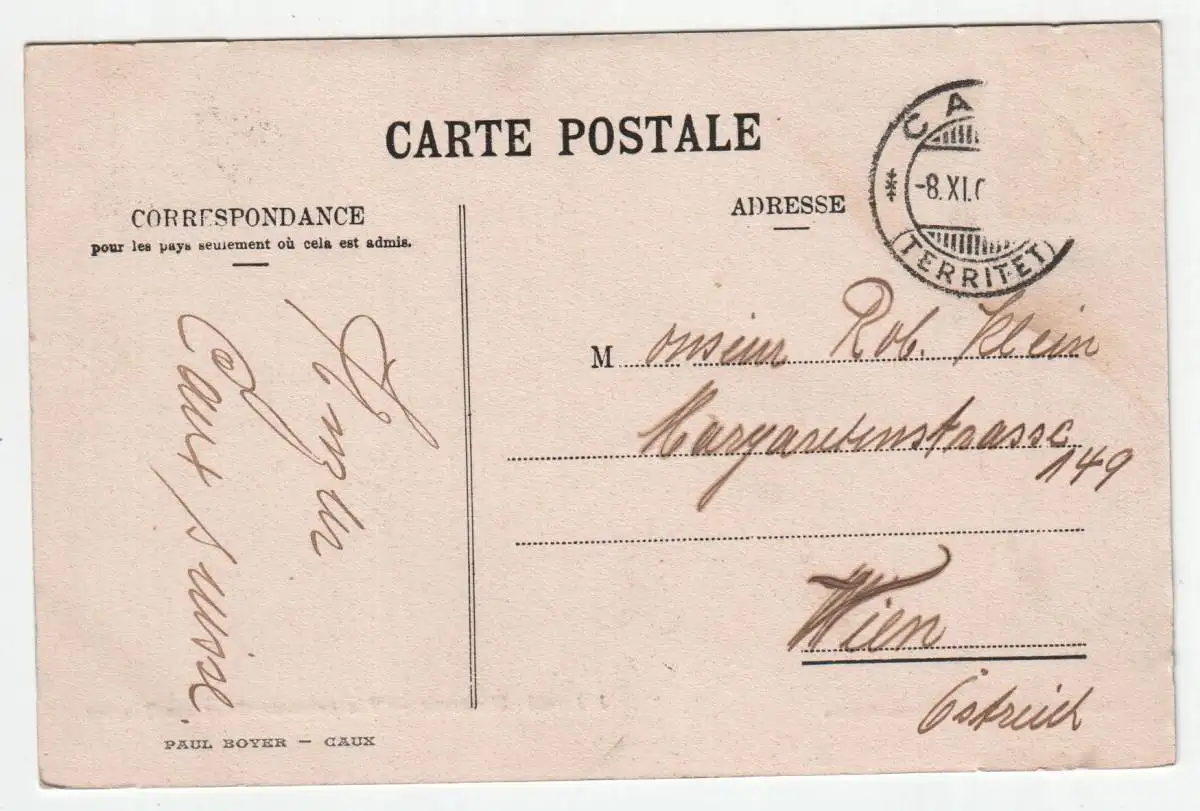 CARTE POSTALE
CORRESPONDANCE
pour les pays seulement où cela est admis.
ADRESSE
CA
-8.XI.
(TERRITET)
Monsieur Rob. Klein
Margaretenstrasse
149
Wien
Östreich
Caux Suisse.
PAUL BOYER – CAUX